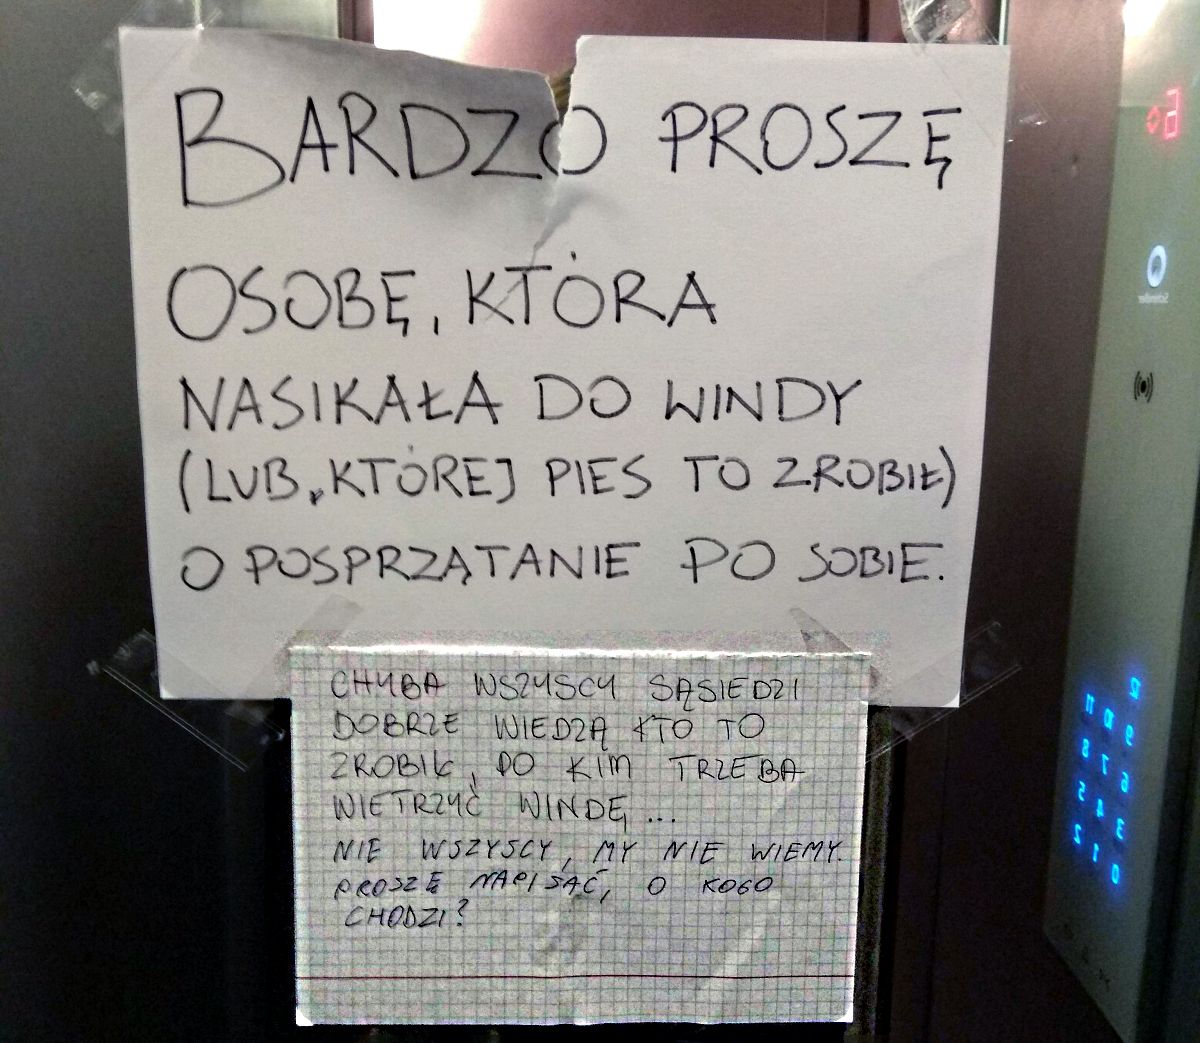 BARDZO PROSZĘ
OSOBĘ, KTÓRA
NASIKAŁA DO WINDY
(LUB, KTÓREJ PIES TO ZROBIŁ)
O POSPRZĄTANIE PO SOBIE.
CHYBA WSZYSCY SĄSIEDZI
DOBRZE WIEDZĄ KTO TO
ZROBIŁ, PO KIM TRZEBA
WIETRZYĆ WINDĘ...
NIE WSZYSCY, MY NIE WIEMY.
PROSZĘ NAPISAĆ, O KOGO
CHODZI?
12
11 10 9
8 7 6
5 4 3
2 1 0